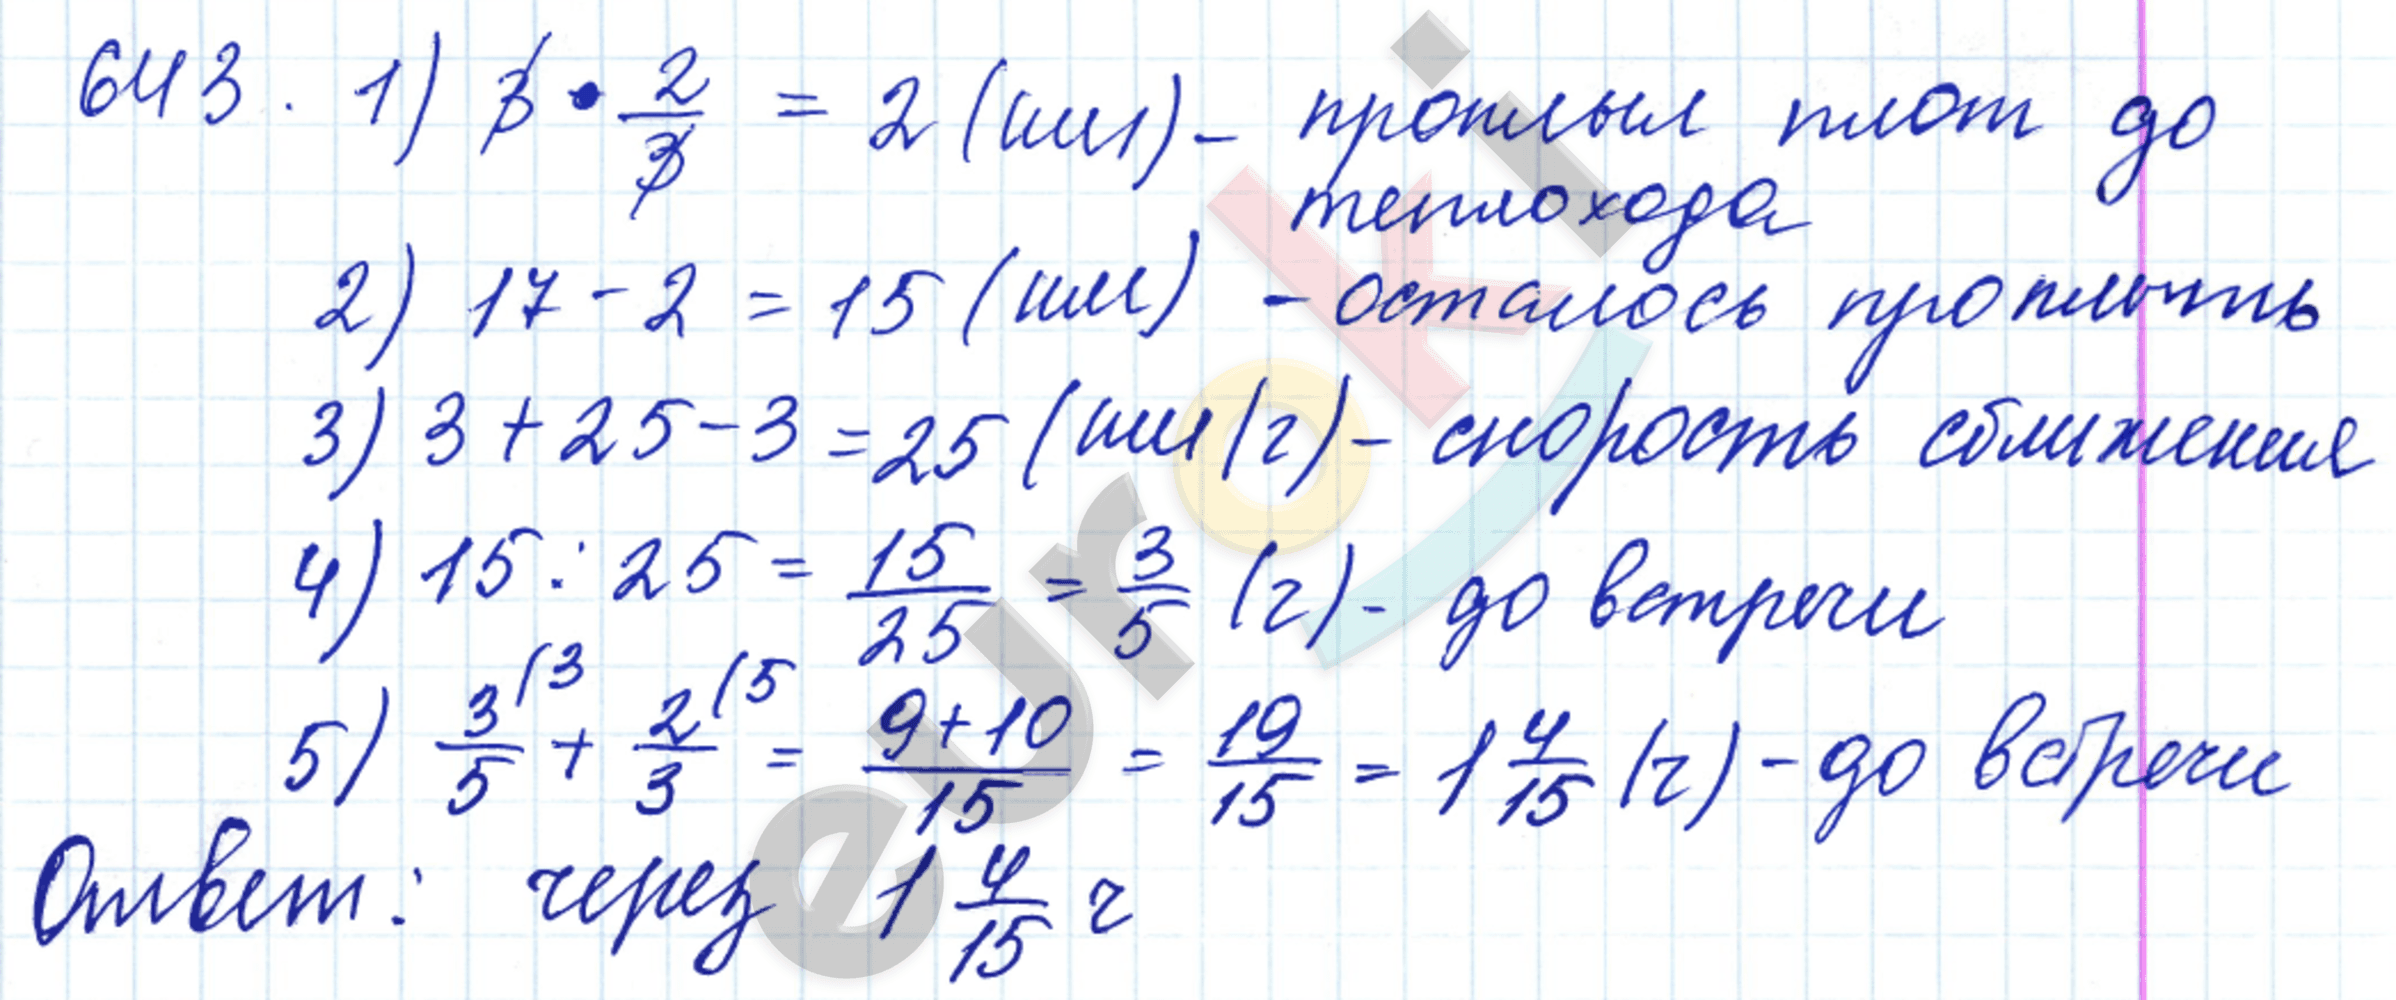 643. 1) 3 · 2/3 = 2 (км) - проплыл плот до
теплохода
2) 17 - 2 = 15 (км) - осталось проплыть
3) 3 + 25 - 3 = 25 (км/ч) - скорость сближения
4) 15 : 25 = 15/25 = 3/5 (ч) - до встречи
5) 3/5 (3 + 2/3 (5 = 9+10/15 = 19/15 = 1 4/15 (ч) - до встречи
Ответ: через 1 4/15 ч
euroki